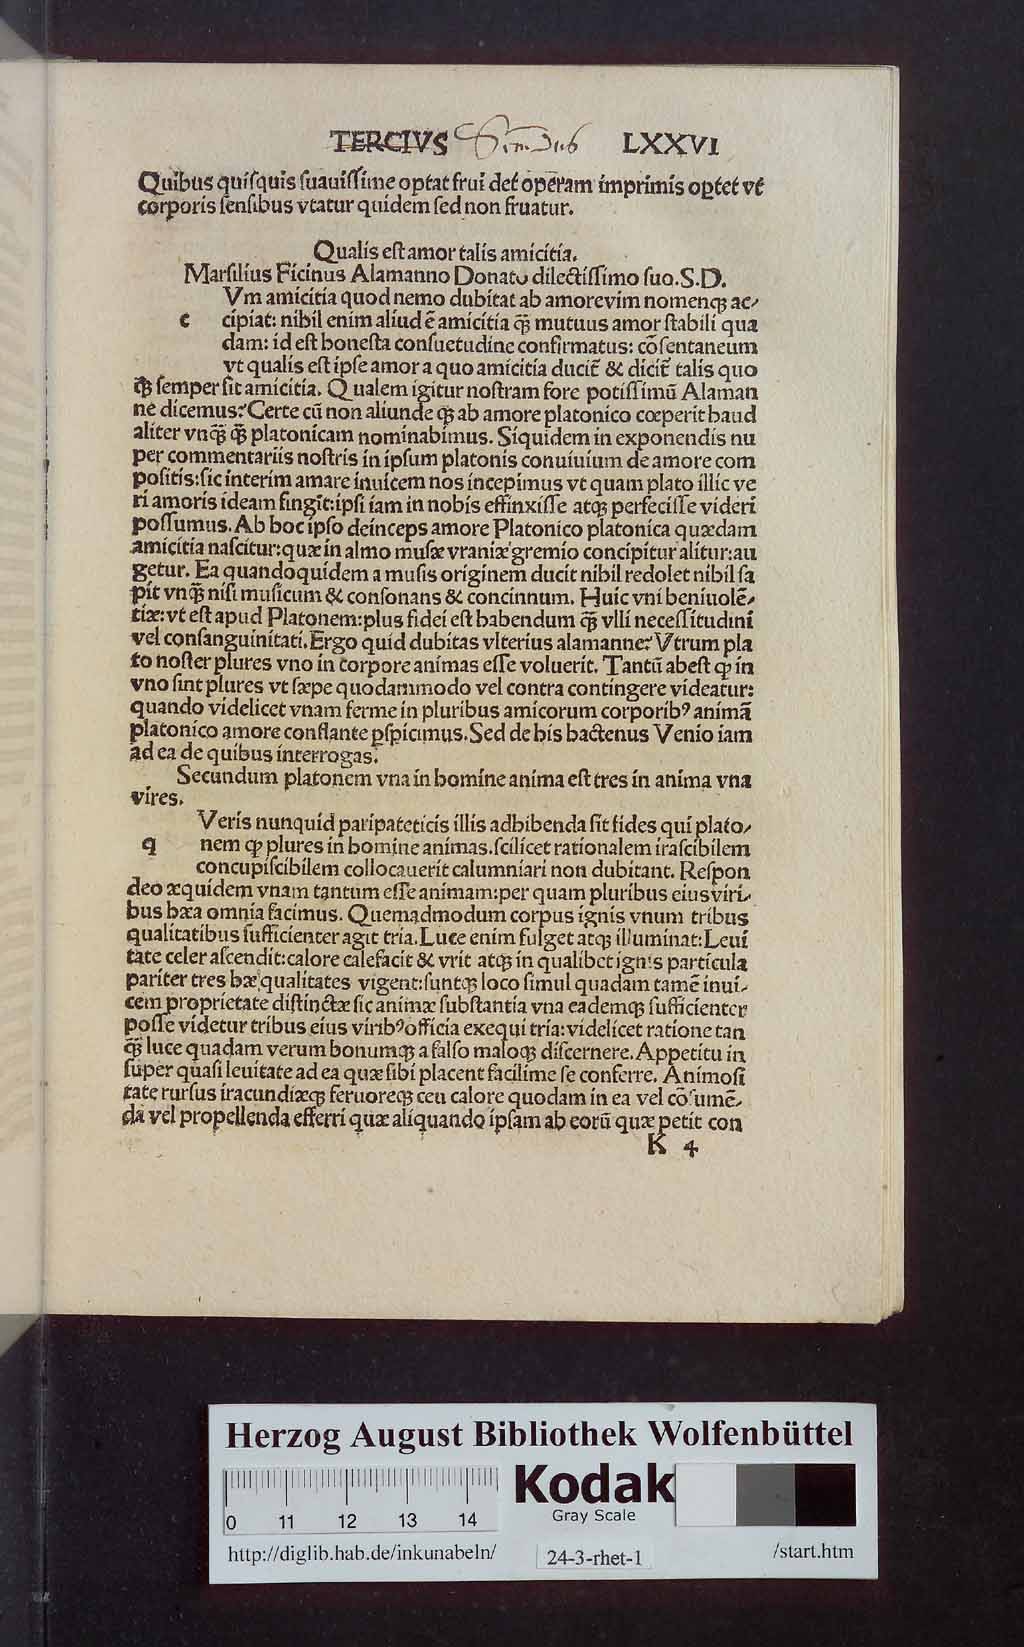 TERCIVS LXXVI
Quibus quiſquis ſuauiſſime optat frui det operam imprimis oꝑtet vt
corporis ſenſibus vtatur quidem ſed non fruatur.
Qualis eſt amor talis amicitia.
Marſilius Ficinus Alamanno Donato dilectiſſimo ſuo.S.D.
Vm amicitia quod nemo dubitat ab amore vim nomenqꝫ ac⸗
c cipiat: nihil enim aliud ē amicitia q̄ꝫ mutuus amor ſtabili qua
dam: id eſt honeſta conſuetudine confirmatus: cōſentaneum
vt qualis eſt ipſe amor a quo amicitia ducit̄ & dicit̄ talis quo
q̄ꝫ ſemper ſit amicitia. Qualem igitur noſtram fore potiſſimū Alaman
ne dicemus? Certe cū non aliunde qꝫ ab amore platonico cœperit haud
aliter vnq̄ꝫ q̄ꝫ platonicam nominabimus. Siquidem in exponendis nu
per commentariis noſtris in ipſum platonis conuiuium de amore com
poſitis: ſic interim amare inuicem nos incepimus vt quam plato illic ve
ri amoris ideam fingit: ipſi iam in nobis effinxiſſe atqꝫ perfeciſſe videri
poſſumus. Ab hoc ipſo deinceps amore Platonico platonica quædam
amicitia naſcitur: quæ in almo muſæ vraniæ gremio concipitur alitur: au
getur. Ea quandoquidem a muſis originem ducit nihil redolet nihil ſa
pit vnq̄ꝫ niſi muſicum & conſonans & concinnum. Huic vni beniuolē⸗
tiæ: vt eſt apud Platonem: plus fidei eſt habendum q̄ꝫ vlli neceſſitudini
vel conſanguinitati. Ergo quid dubitas vlterius alamanne? Vtrum pla
to noſter plures vno in corpore animas eſſe voluerit. Tantū abeſt ꝙ in
vno ſint plures vt ſæpe quodammodo vel contra contingere videatur:
quando videlicet vnam ferme in pluribus amicorum corporibꝰ animā
platonico amore conflante ꝑſpicimus. Sed de his hactenus Venio iam
ad ea de quibus interrogas.
Secundum platonem vna in homine anima eſt tres in anima vna
vires.
Veris nunquid paripateticis illis adhibenda ſit fides qui plato⸗
q nem ꝙ plures in homine animas. ſcilicet rationalem iraſcibilem
concupiſcibilem collocauerit calumniari non dubitant. Reſpon
deo æquidem vnam tantum eſſe animam: per quam pluribus eius viri⸗
bus hæa omnia facimus. Quemadmodum corpus ignis vnum tribus
qualitatibus ſufficienter agit tria. Luce enim fulget atqꝫ illuminat: Leui
tate celer aſcendit: calore calefacit & vrit atqꝫ in qualibet ignis particula
pariter tres hæ qualitates vigent: ſuntqꝫ loco ſimul quadam tamē inui⸗
cem proprietate diſtinctæ ſic animæ ſubſtantia vna eademqꝫ ſufficienter
poſſe videtur tribus eius viribꝰ officia exequi tria: videlicet ratione tan
q̄ꝫ luce quadam verum bonumqꝫ a falſo maloqꝫ diſcernere. Appetitu in
ſuper quaſi leuitate ad ea quæ ſibi placent facilime ſe conferre. Animoſi
tate rurſus iracundiæqꝫ feruoreqꝫ ceu calore quodam in ea vel cōſumē⸗
da vel propellenda efferri quæ aliquando ipſam ab eorū quæ petit con
K 4
Herzog August Bibliothek Wolfenbüttel
Kodak
Gray Scale
0 11 12 13 14
http://diglib.hab.de/inkunabeln/ 24-3-rhet-1 /start.htm